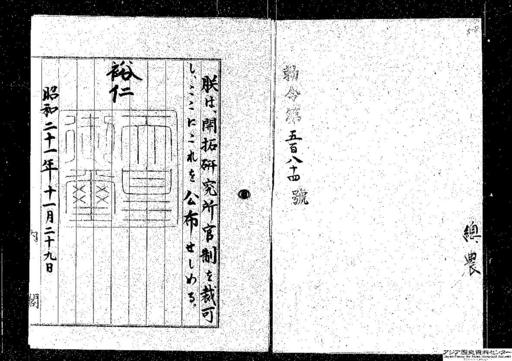 總農
勅令第五百八十四號
朕は、開拓研究所官制を裁可
し、ここにこれを公布せしめる。
裕仁
天皇
御璽
昭和二十一年十一月二十九日
内閣
アジア歴史資料センター